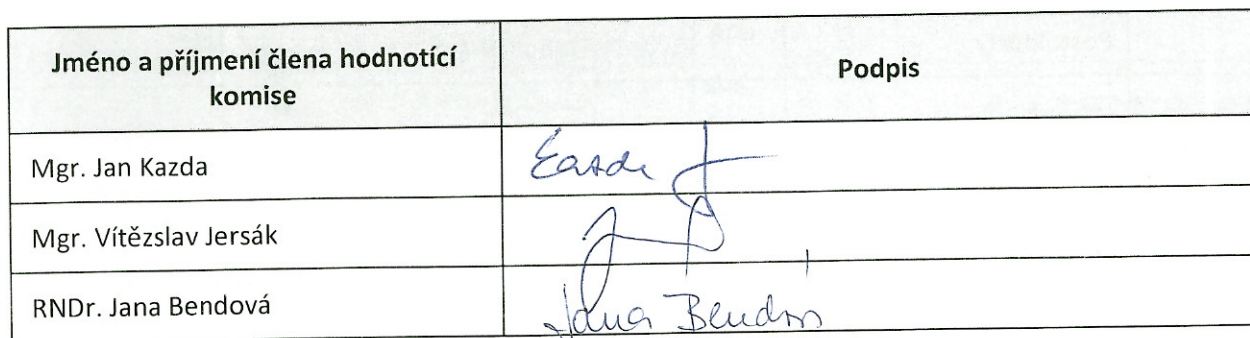 Jméno a příjmení člena hodnotící
komise
Podpis
Mgr. Jan Kazda
Mgr. Vítězslav Jersák
RNDr. Jana Bendová
Jana